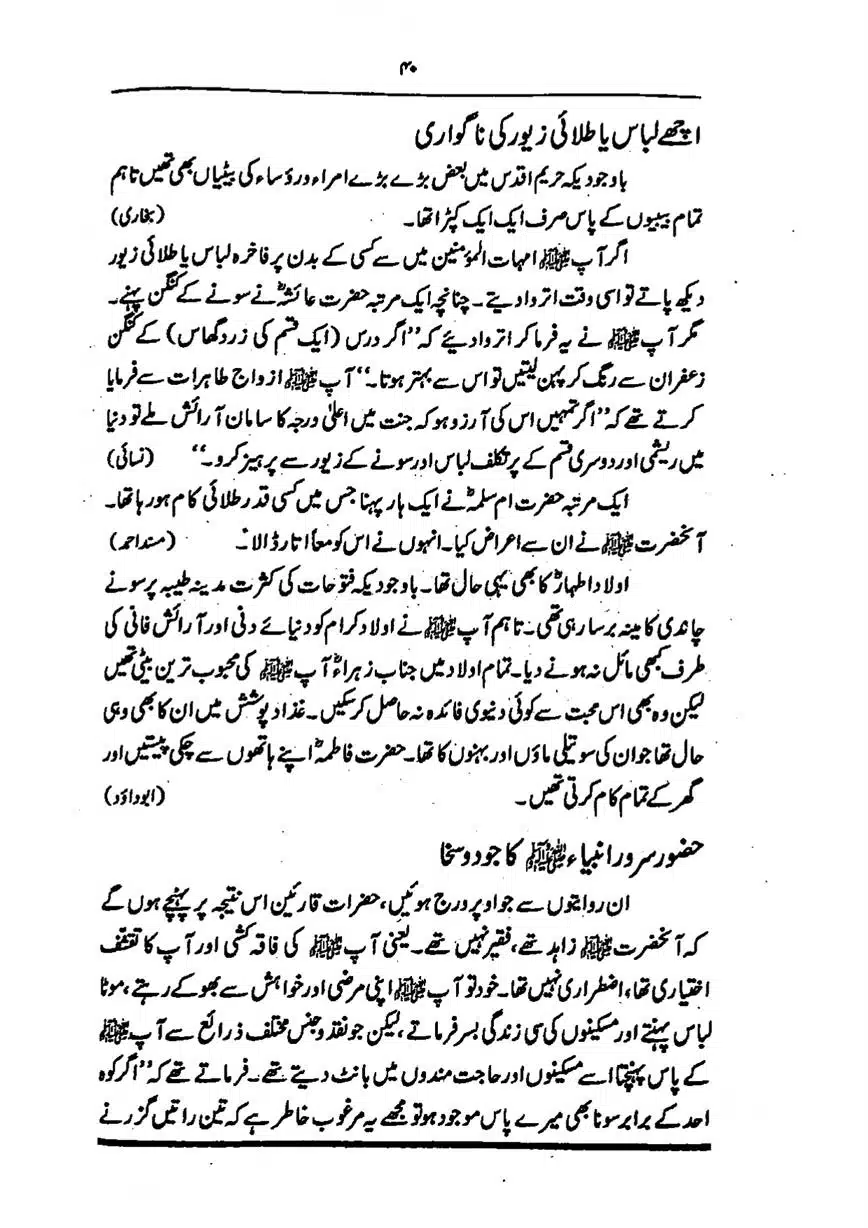 ۴۰
اچھے لباس یا طلائی زیور کی ناگواری
باوجودیکہ حریم اقدس میں بعض بڑے بڑے امراء ورؤساء کی بیٹیاں بھی تھیں تاہم
تمام بیبیوں کے پاس صرف ایک ایک کپڑا تھا۔ (بخاری)
اگر آپ ﷺ امہات المؤمنین میں سے کسی کے بدن پر فاخرہ لباس یا طلائی زیور
دیکھ پاتے تو اسی وقت اتروا دیتے۔ چنانچہ ایک مرتبہ حضرت عائشہؓ نے سونے کے کنگن پہنے۔
مگر آپ ﷺ نے یہ فرما کر اتروا دیئے کہ ’’اگر درس (ایک قسم کی زرد گھاس) کے کنگن
زعفران سے رنگ کر پہن لیتیں تو اس سے بہتر ہوتا۔‘‘ آپ ﷺ ازواج طاہرات سے فرمایا
کرتے تھے کہ ’’اگر تمہیں اس کی آرزو ہو کہ جنت میں اعلیٰ درجہ کا سامان آرائش ملے تو دنیا
میں ریشمی اور دوسری قسم کے پر تکلف لباس اور سونے کے زیور سے پرہیز کرو۔‘‘ (نسائی)
ایک مرتبہ حضرت ام سلمہؓ نے ایک ہار پہنا جس میں کسی قدر طلائی کام ہو رہا تھا۔
آنحضرت ﷺ نے ان سے اعراض کیا۔ انہوں نے اس کو معاً اتار ڈالا۔ (مسند احمد)
اولاد اطہارؓ کا بھی یہی حال تھا۔ باوجودیکہ فتوحات کی کثرت مدینہ طیبہ پر سونے
چاندی کا مینہ برسا رہی تھی۔ تاہم آپ ﷺ نے اولاد کرام کو دنیائے دنی اور آرائش فانی کی
طرف کبھی مائل نہ ہونے دیا۔ تمام اولاد میں جناب زہراءؓ آپ ﷺ کی محبوب ترین بیٹی تھیں
لیکن وہ بھی اس محبت سے کوئی دنیوی فائدہ نہ حاصل کر سکیں۔ غذا و پوشش میں ان کا بھی وہی
حال تھا جو ان کی سوتیلی ماؤں اور بہنوں کا تھا۔ حضرت فاطمہؓ اپنے ہاتھوں سے چکی پیستیں اور
گھر کے تمام کام کرتی تھیں۔ (ابوداؤد)
حضور سرور انبیاء ﷺ کا جود و سخا
ان روایتوں سے جو اوپر درج ہوئیں، حضرات قارئین اس نتیجہ پر پہنچے ہوں گے
کہ آنحضرت ﷺ زاہد تھے، فقیر نہیں تھے۔ یعنی آپ ﷺ کی فاقہ کشی اور آپ کا تقشف
اختیاری تھا، اضطراری نہیں تھا۔ خود تو آپ ﷺ اپنی مرضی اور خواہش سے بھوکے رہتے، موٹا
لباس پہنتے اور مسکینوں کی سی زندگی بسر فرماتے، لیکن جو نقد و جنس مختلف ذرائع سے آپ ﷺ
کے پاس پہنچتا اسے مسکینوں اور حاجت مندوں میں بانٹ دیتے تھے۔ فرماتے تھے کہ ’’اگر کوہ
احد کے برابر سونا بھی میرے پاس موجود ہو تو مجھے یہ مرغوب خاطر ہے کہ تین راتیں گزرنے